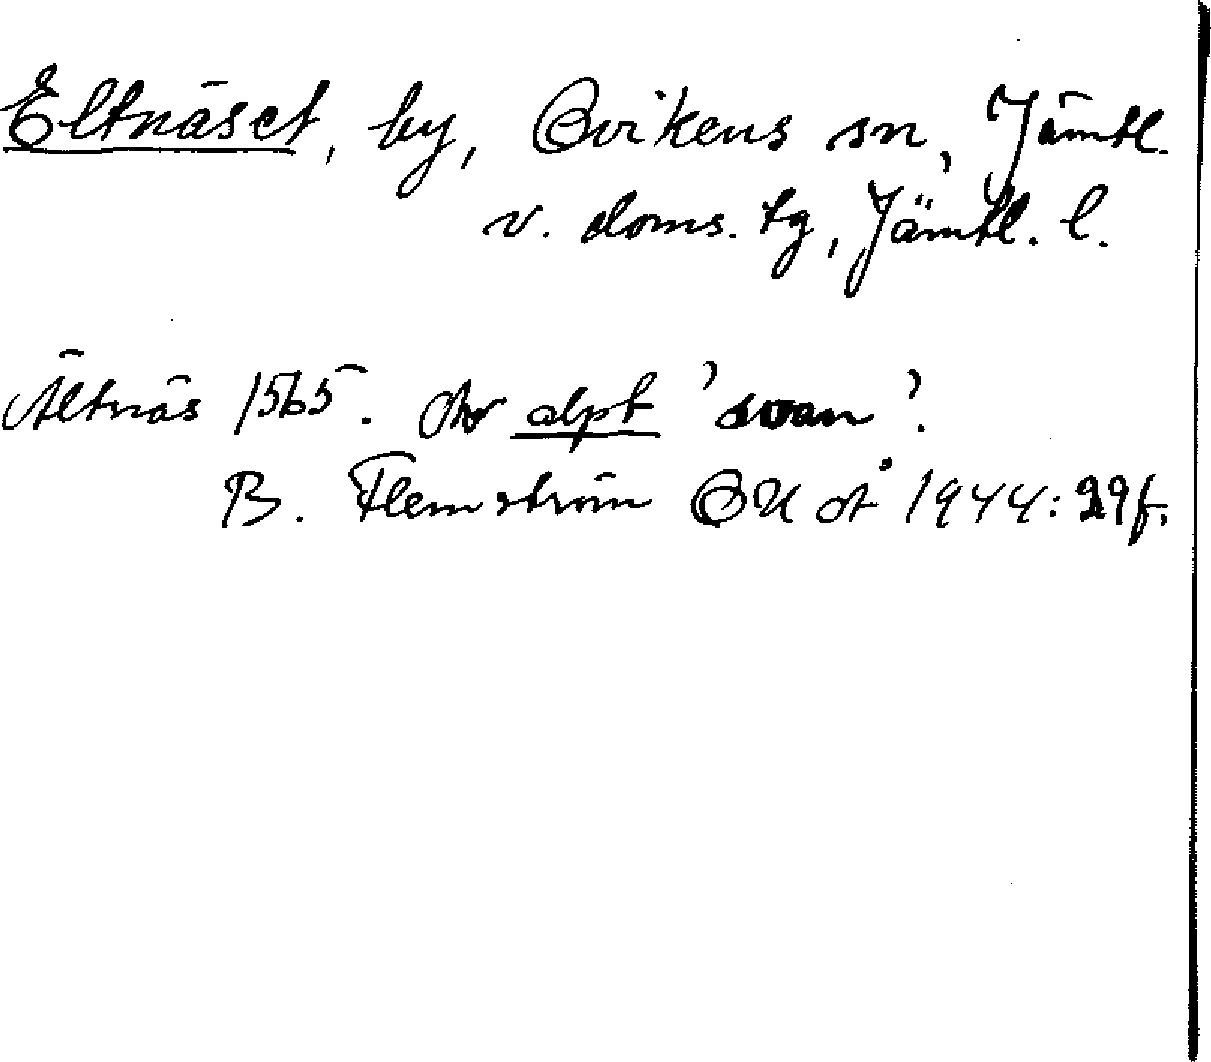 Eltnäset, by, Ovikens sn, Jämtl.
v. doms. tg, Jämtl. l.
Ältnäs 1565. Av alpt 'svan'.
B. Flemström OUÅ 1944: 29f.